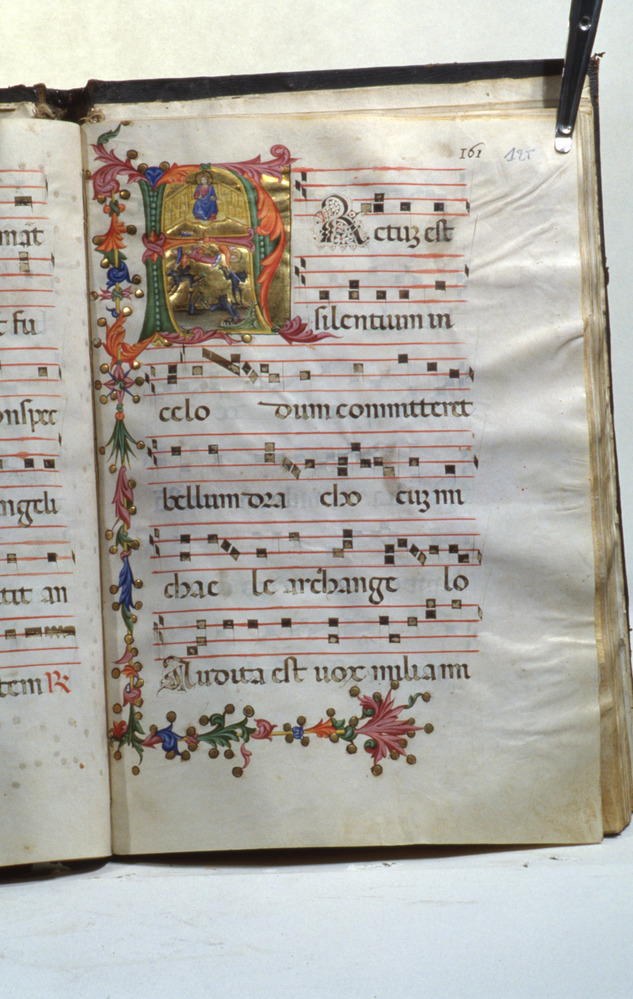 mat
t fu
onspec
ngeli
tit an
tem R
161 125
F Actuz est
silentium in
celo dum committeret
bellum dra cho cuz mi
chae le archange lo
Audita est uox milia mi